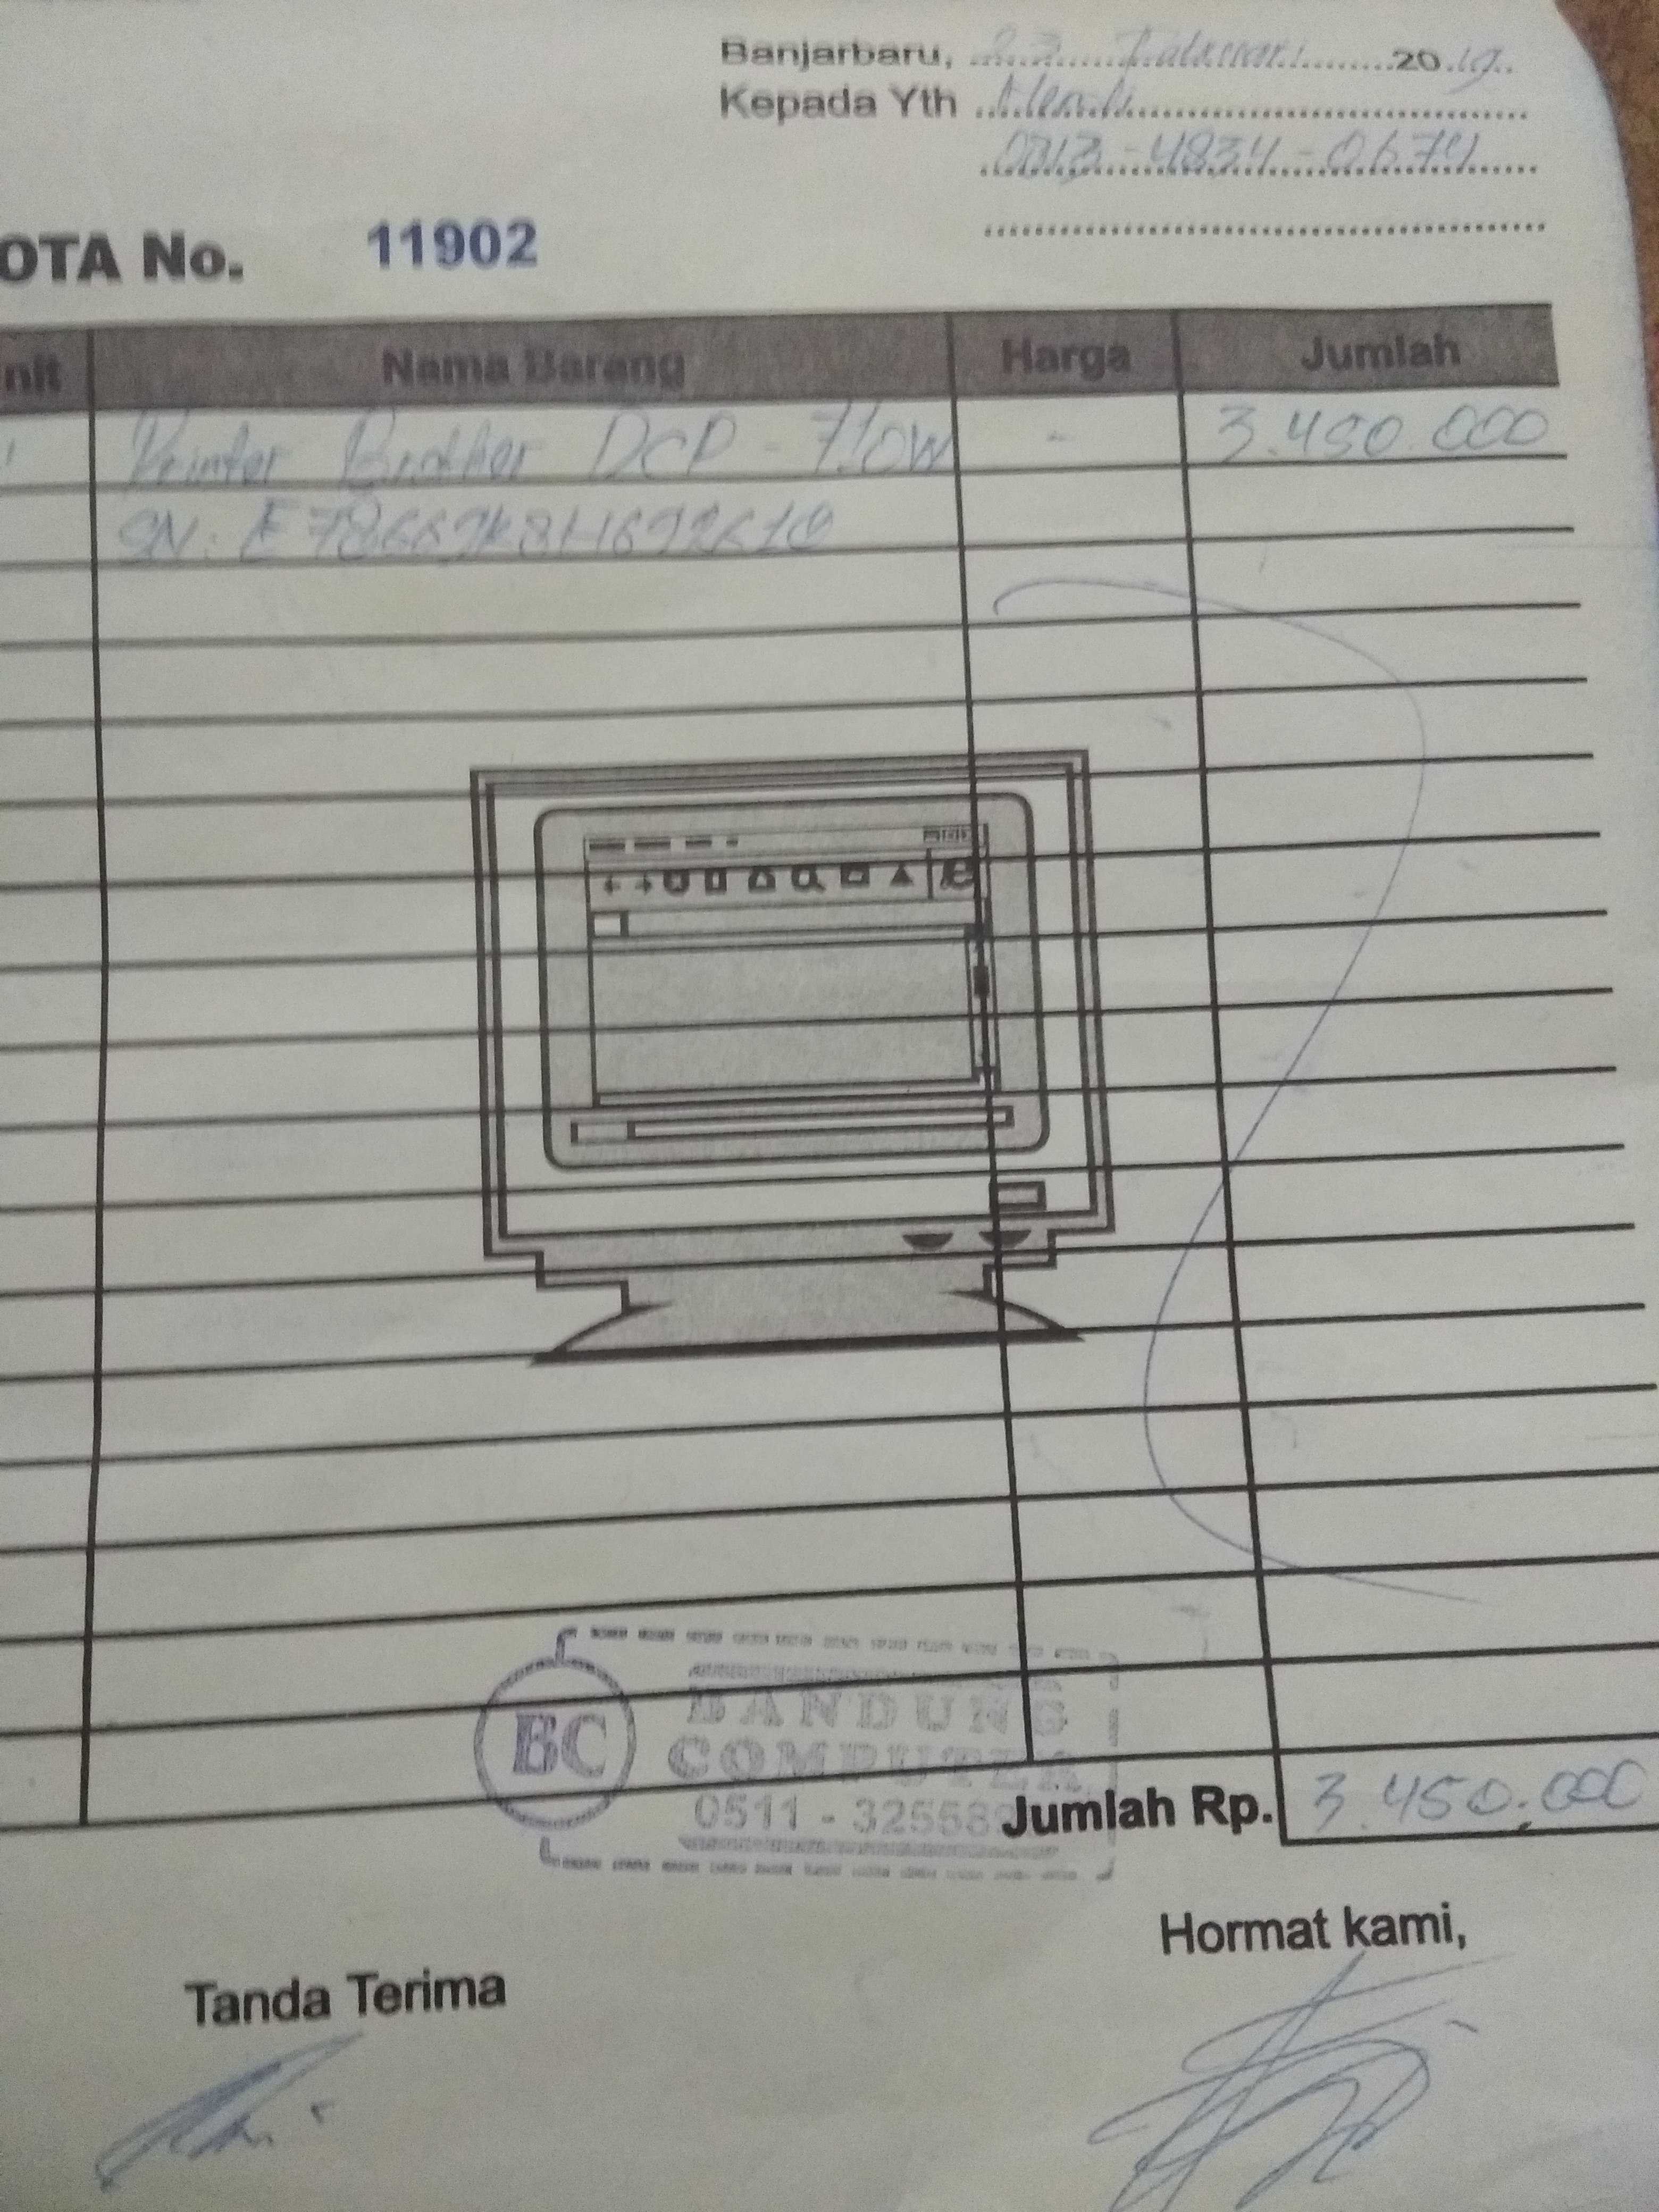 Banjarbaru, 23 Februari 2019
Kepada Yth Hendi
0813-4834-0674
OTA No. 11902
nit Nama Barang Harga Jumlah
1 Printer Brother DCP - 710W - 3.450.000
SN: E78667K8H692610
BC
BANDUNG
COMPUTER
0511 - 32558
Jumlah Rp. 3.450.000
Tanda Terima
Hormat kami,